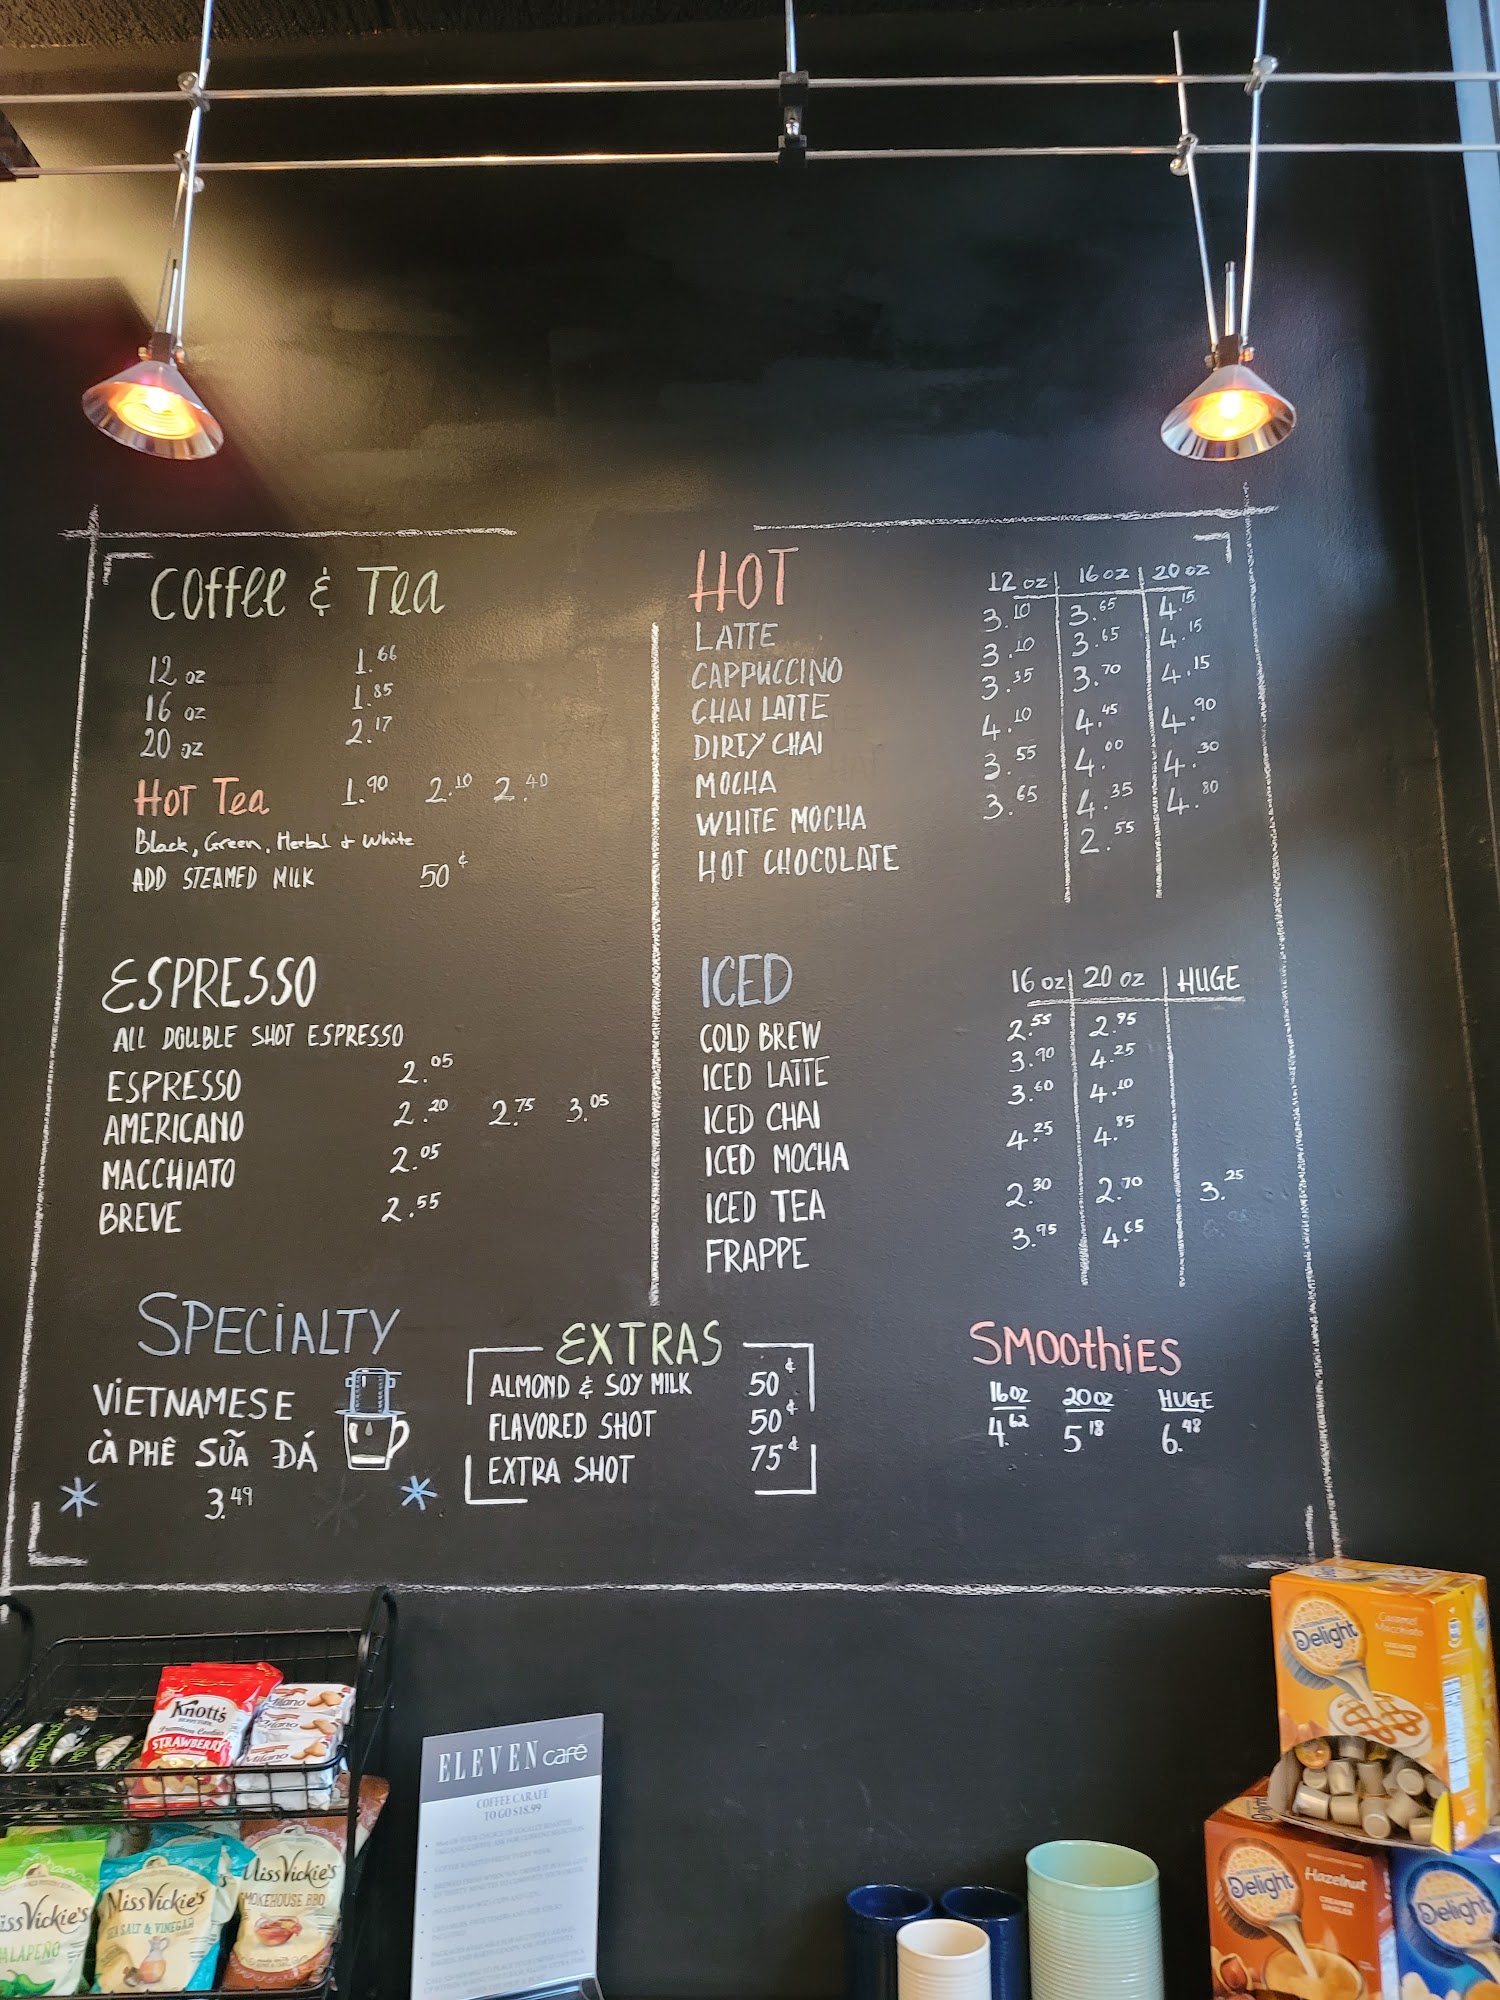 COFFEE & TEA
12 oz 1.66
16 oz 1.85
20 oz 2.17
HOT TEA 1.90 2.10 2.40
Black, Green, Herbal + White
ADD STEAMED MILK 50¢
ESPRESSO
ALL DOUBLE SHOT ESPRESSO
ESPRESSO 2.05
AMERICANO 2.20 2.75 3.05
MACCHIATO 2.05
BREVE 2.55
HOT 12 oz 16 oz 20 oz
LATTE 3.10 3.65 4.15
CAPPUCCINO 3.10 3.65 4.15
CHAI LATTE 3.35 3.70 4.15
DIRTY CHAI 4.10 4.45 4.90
MOCHA 3.55 4.00 4.30
WHITE MOCHA 3.65 4.35 4.80
HOT CHOCOLATE 2.55
ICED 16 oz 20 oz HUGE
COLD BREW 2.55 2.95
ICED LATTE 3.90 4.25
ICED CHAI 3.60 4.10
ICED MOCHA 4.25 4.85
ICED TEA 2.30 2.70 3.25
FRAPPE 3.95 4.65
SPECIALTY
VIETNAMESE
CÀ PHÊ SỮA ĐÁ
3.49
EXTRAS
ALMOND & SOY MILK 50¢
FLAVORED SHOT 50¢
EXTRA SHOT 75¢
SMOOTHIES
16oz 20oz HUGE
4.62 5.18 6.98
Knott's
BERRY FARM
Premium Cookies
STRAWBERRY
Shortbread
Milano
Milano
Milano
PISTACHIOS
Miss Vickie's
JALAPEÑO
Miss Vickie's
SEA SALT & VINEGAR
Miss Vickie's
SMOKEHOUSE BBQ
ELEVEN café
COFFEE CARAFE
TO GO $18.99
INTERNATIONAL
Delight
Caramel
Macchiato
CREAMER
SINGLES
Delight
Hazelnut
CREAMER
SINGLES
Delight